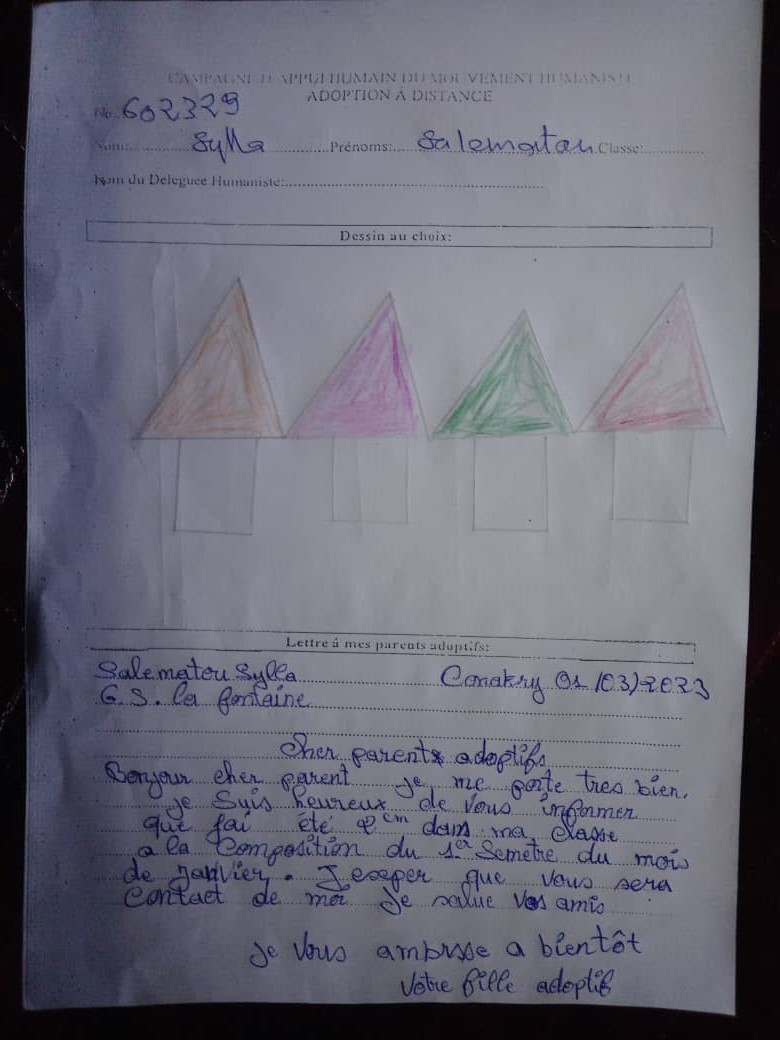 CAMPAGNE D'APPUI HUMAIN DU MOUVEMENT HUMANISTE
ADOPTION À DISTANCE
No: 602329
Nom: Sylla Prénoms: Salematou Classe:
Nom du Deleguee Humaniste:
Dessin au choix:
Lettre à mes parents adoptifs:
Salematou Sylla Conakry 01/03/2023
G.S. la fontaine
Cher parents adoptifs
Bonjour cher parent je me porte tres bien.
je Suis heureux de Vous informer
que j'ai été 2em dans ma classe
a la Composition du 1er Semetre du mois
de janvier. J'eseper que vous sera
Contact de moi je salue vos amis
je vous ambrsse a bientôt
Votre fille adoptif